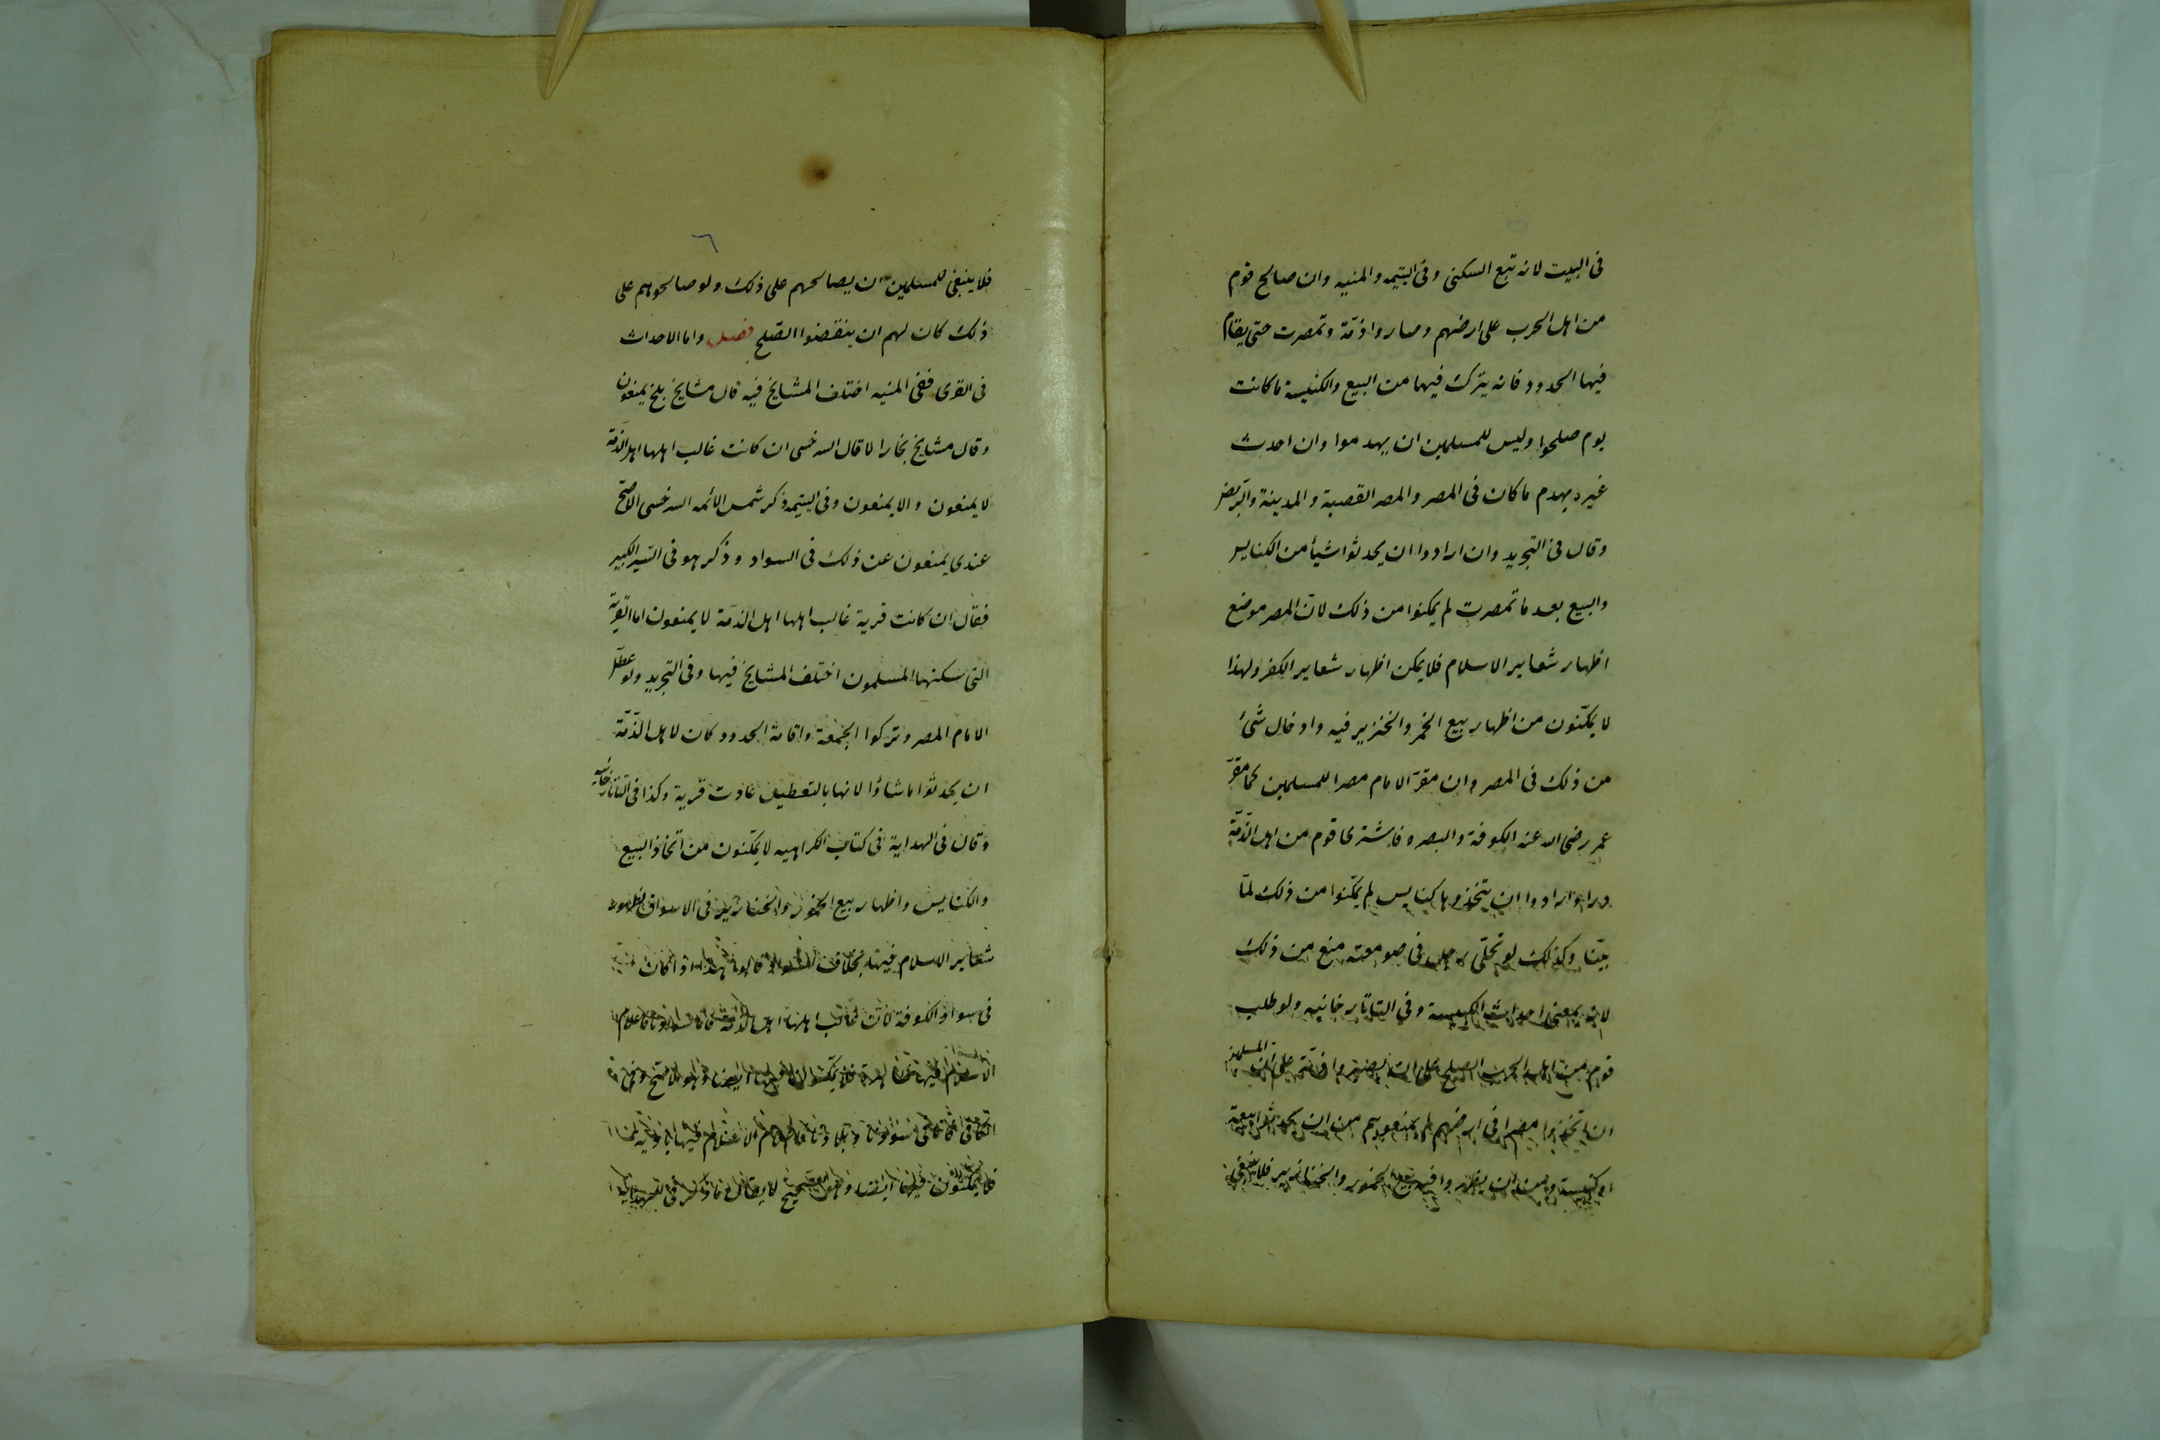 فى البيت لانه تبع السكنى وفى اليتيمه والمنيه وان صالح قوم
من اهل الحرب على ارضهم وصاروا ذمّة وتمصرت حتى يقام
فيها الحدود فانه يترك فيها من البيع والكنيسة ما كانت
يوم صلحوا وليس للمسلمين ان يهدموا وان احدث
غيره يهدم ما كان فى المصر والمصر القصبة والمدينة والربض
وقال فى التجريد وان ارادوا ان يحدثوا شيأ من الكنايس
والبيع بعد ما تمصرت لم يمكنوا من ذلك لانّ المصر موضع
اظهار شعاير الاسلام فلا يمكن اظهار شعاير الكفر ولهذا
لا يمكّنون من اظهار بيع الخمر والخنزير فيه وادخال شئ
من ذلك فى المصر وان مقرّ الامام مصرا للمسلمين كما مقرّ
عمر رضى الله عنه الكوفة والبصره فاشترى قوم من اهل الذّمّة
دورا وارادوا ان يتخذوها كنايس لم يمكّنوا من ذلك لمّا
بيّنا وكذلك لو تخلّى رجل فى صومعته منع من ذلك
لانه بمعنى احداث الكنيسة وفى التاتارخانيه ولو طلب
قوم من اهل الحرب الصلح على ان المسلمين
ان اتخذوا مصرا فى ارضهم لم يمنعوهم من ان يحدثوا بيعة
او كنيسة ومن ان يظهروا فيه بيع الخمور والخنازير فلا ينبغى
٦
فلا ينبغى للمسلمين ان يصالحهم على ذلك ولو صالحوهم على
ذلك كان لهم ان ينقضوا الصّلح فصل واما الاحداث
فى القرى ففى المنيه اختلف المشايخ فيه قال مشايخ بلخ يمنعون
وقال مشايخ بخارا لا قال السرخسى ان كانت غالب اهلها اهل الذّمة
لا يمنعون والا يمنعون وفى اليتيمه ذكر شمس الائمه السرخسى الاصحّ
عندى يمنعون عن ذلك فى السواد وذكر هو فى السّير الكبير
فقال ان كانت قرية غالب اهلها اهل الذّمّة لا يمنعون اما القرية
التى سكنها المسلمون اختلف المشايخ فيها وفى التجريد ولو عطّل
الامام المصر وتركوا الجمعة واقامة الحدود كان لاهل الذّمّة
ان يحدثوا ما شاؤا لانها بالتعطيل عادت قرية وكذا فى التاتارخانيه
وقال فى الهداية فى كتاب الكراهيه لا يمكّنون من اتخاذ البيع
والكنايس واظهار بيع الخمور والخنازير فى الاسواق لظهور
شعاير الاسلام فيها بخلاف السواد قالوا هذا كان
فى سواد الكوفة لانّ غالب اهلها اهل الذمّة فاما سوادنا فاعلام
الاسلام فيها ظاهرة فلا يمكّنون فيها ايضا وهو الاصح
فلا يمكّنون فيها ايضا وهو الصّحيح لا يقال